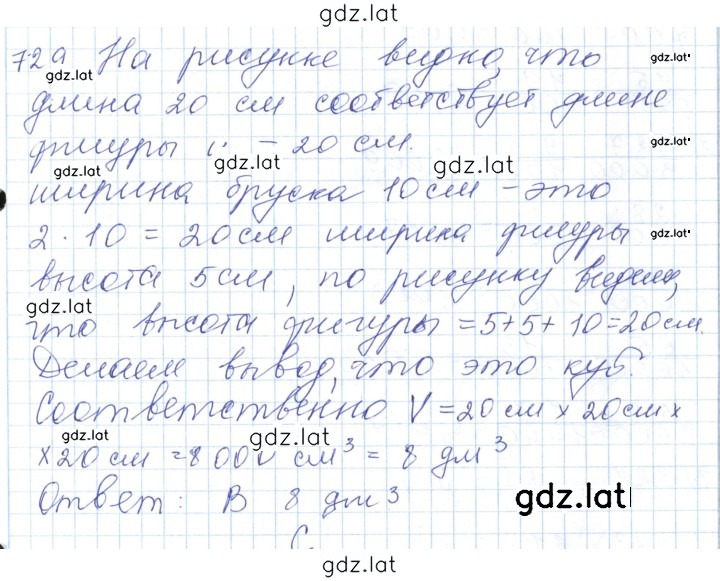 gdz.lat
72а На рисунке видно, что gdz.lat
gdz.lat
длина 20 см соответствует длине
фигуры - 20 см. gdz.lat
gdz.lat gdz.lat
ширина бруска 10 см - это
2 · 10 = 20 см ширина фигуры gdz.lat
высота 5 см, по рисунку видим,
gdz.lat
что высота фигуры = 5 + 5 + 10 = 20 см.
Делаем вывод, что это куб.
Соответственно V = 20 см x 20 см x
gdz.lat gdz.lat
x 20 см = 8 000 см³ = 8 дм³
Ответ: В 8 дм³ gdz.lat
gdz.lat